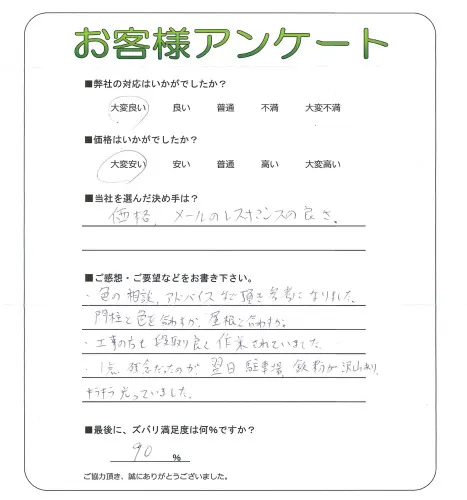 お客様アンケート
■弊社の対応はいかがでしたか？
大変良い 良い 普通 不満 大変不満
■価格はいかがでしたか？
大変安い 安い 普通 高い 大変高い
■当社を選んだ決め手は？
価格、メールのレスポンスの良さ。
■ご感想・ご要望などをお書き下さい。
・色の相談、アドバイスなど頂き参考になりました。
門柱と色を合わすか、屋根と合わすか。
・工事の方も段取り良く作業されていました。
・1点 残念だったのが 翌日 駐車場、鉄粉が沢山あり、
キラキラ光っていました。
■最後に、ズバリ満足度は何%ですか？
90 %
ご協力頂き、誠にありがとうございました。